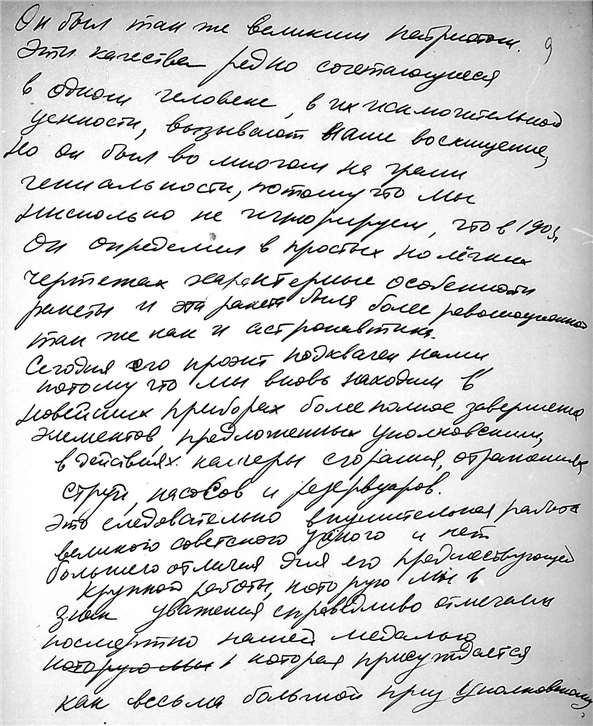 9
Он был так же великим патриотом.
Эти качества редко сочетающиеся
в одном человеке, в их исключительной
ценности, вызывают наше восхищение,
Но он был во многом на грани
гениальности, потому что мы
нисколько не игнорируем, что в 1903г.
Он определил в простых но лёгких
чертежах характерные особенности
ракеты и эта ракета была более революционной
так же как и астронавтика.
Сегодня его проэкт подхвачен нами
потому что мы вновь находим в
новейших приборах более полное завершение
элементов предложенных Циолковским,
в действиях камеры сгорания, отражения
струй, насосов и резервуаров.
Это следовательно внушительная работа
великого советского учёного и нет
большего отличия для его предшествующей
крупной работы, которую мы в
знак уважения справедливо отмечаем
посмертно нашей медалью
которую мы и которая присуждается
как весьма большой приз Циолковскому,